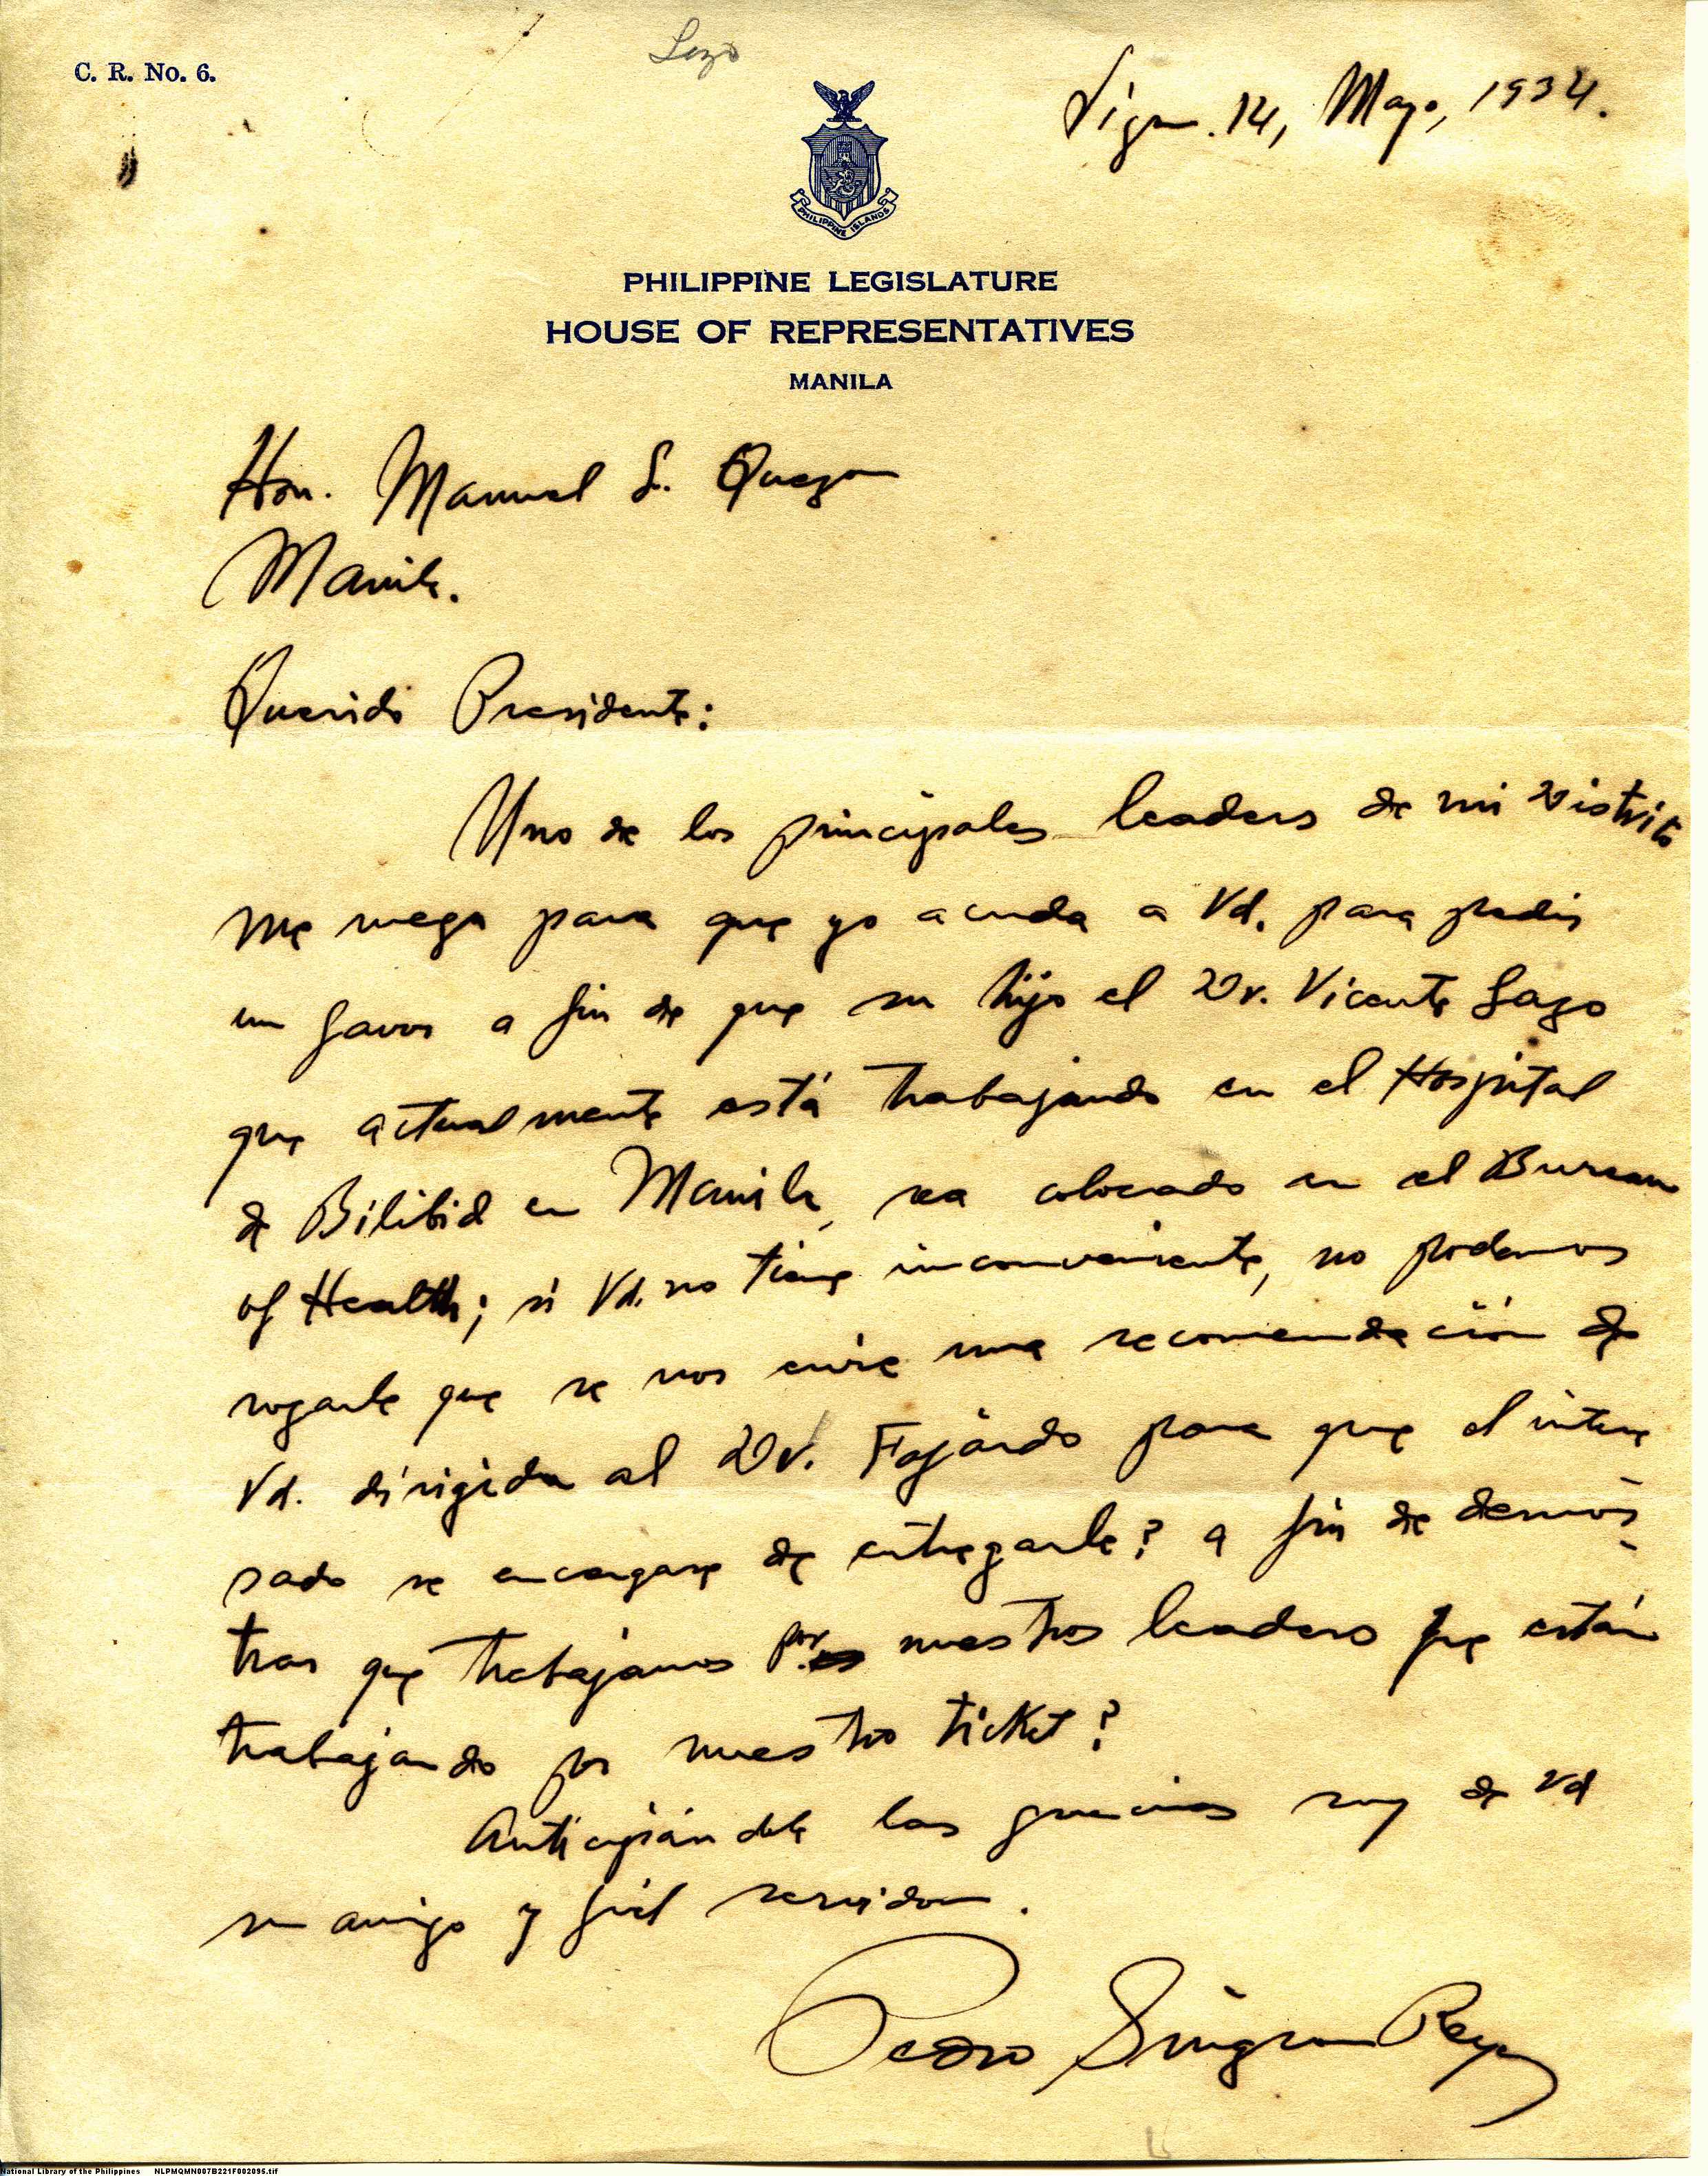 C. R. No. 6.
Vigan. 14, Mayo, 1934.
PHILIPPINE ISLANDS
PHILIPPINE LEGISLATURE
HOUSE OF REPRESENTATIVES
MANILA
Hon. Manuel L. Quezon
Manila.
Querido Presidente:
Uno de los principales leaders de mi Distrito
me ruega para que yo acuda a Vd. para pedir
un favor a fin de que su hijo el Dr. Vicente Lazo
que actualmente está trabajando en el Hospital
de Bilibid en Manila, sea colocado en el Bureau
of Health; si Vd. no tiene inconveniente, no podemos
rogarle que se nos envie una recomendación de
Vd. dirigida al Dr. Fajardo para que el intere
sado se encargase de entregarle? a fin de demos-
trar que trabajamos por nuestros leaders que están
trabajando por nuestro ticket?
Anticipándole las gracias soy de Vd
su amigo y fiel servidor.
Pedro Singson Reyes
National Library of the Philippines NLPMQMN007B221F002095.tif